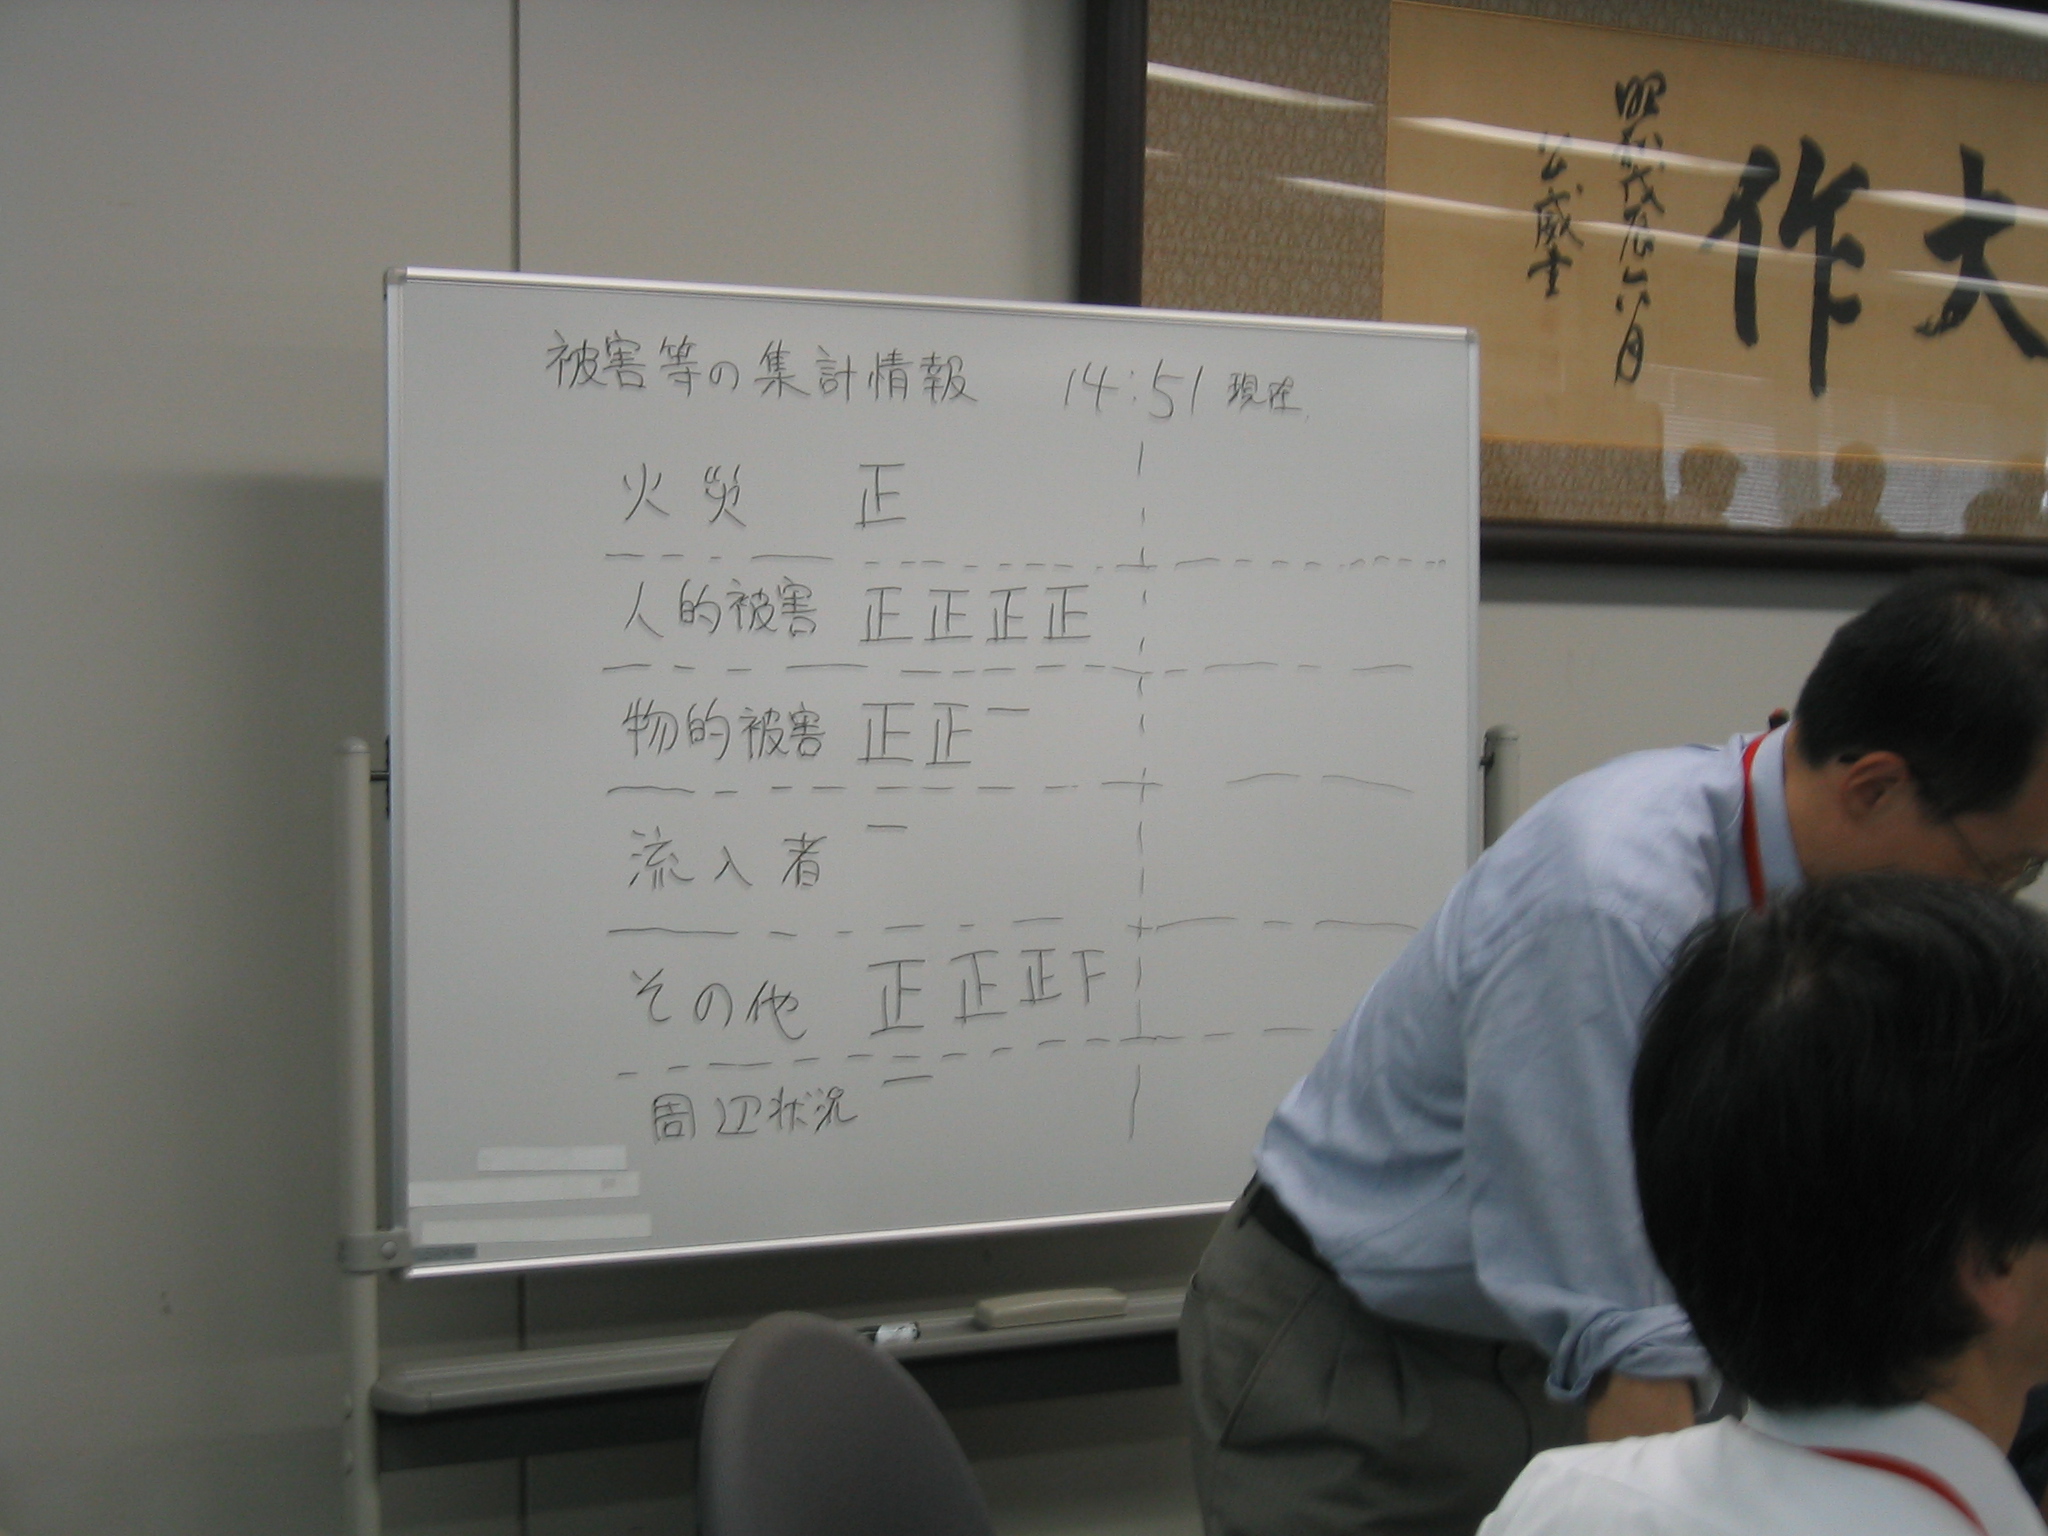 被害等の集計情報 14:51 現在
火災 正
人的被害 正正正正
物的被害 正正一
流入者 一
その他 正正正下
周辺状況 二
大作
昭和戊辰六月